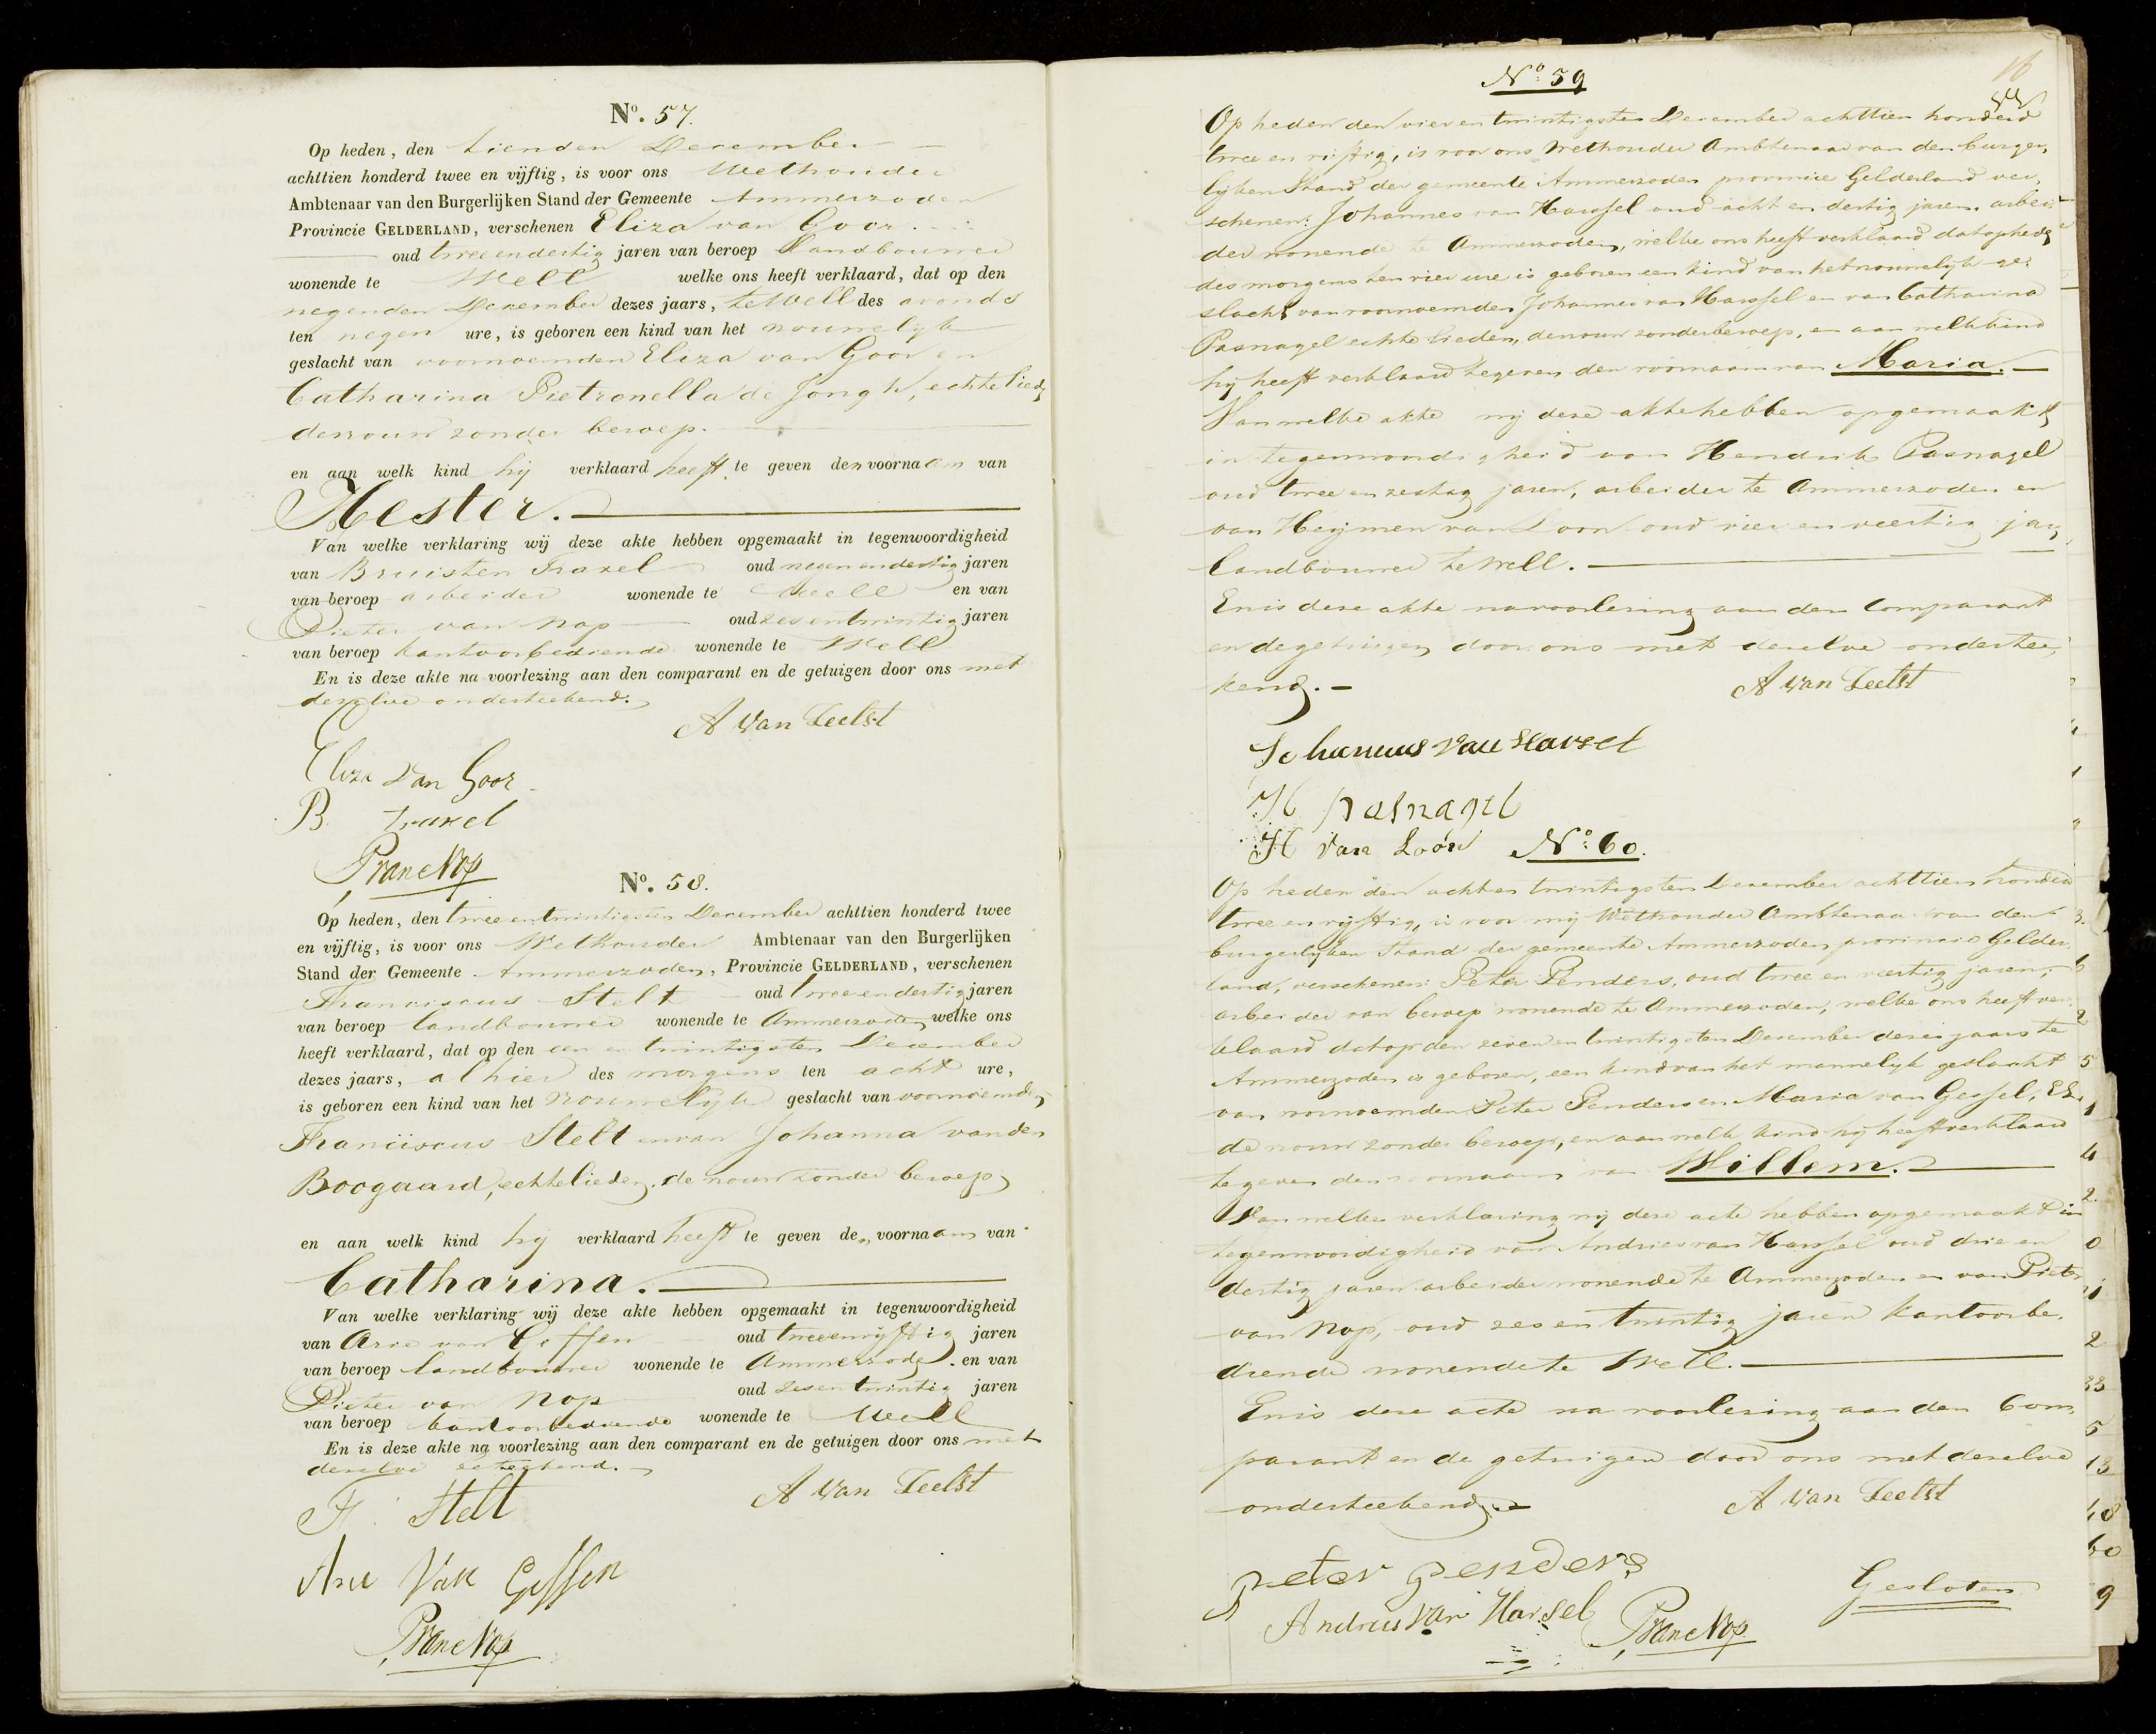 No. 57.
Op heden, den tienden December
achttien honderd twee en vijftig, is voor ons Wethouder
Ambtenaar van den Burgerlijken Stand der Gemeente Ammerzoden
Provincie GELDERLAND, verschenen Eliza van Goor.
oud twee en dertig jaren van beroep Landbouwer
wonende te Well welke ons heeft verklaard, dat op den
negenden December dezes jaars, te Well des avonds
ten negen ure, is geboren een kind van het vrouwelijk
geslacht van voornoemden Eliza van Goor en
Catharina Pietronella de Jongh, echtelied
de vrouw zonder beroep.
en aan welk kind hij verklaard heeft te geven den voornaam van
Hester.
Van welke verklaring wij deze akte hebben opgemaakt in tegenwoordigheid
van Bruisten Traxel oud negen en dertig jaren
van beroep arbeider wonende te Well en van
Pieter van Nop oud zes en twintig jaren
van beroep kantoorbediende wonende te Well
En is deze akte na voorlezing aan den comparant en de getuigen door ons met
dezelve onderteekend.
A van Zeelst
Eliza van Goor
B. traxel
P van Nop
No. 58.
Op heden, den twee en twintigsten December achttien honderd twee
en vijftig, is voor ons Wethouder Ambtenaar van den Burgerlijken
Stand der Gemeente Ammerzoden, Provincie GELDERLAND, verschenen
Franciscus Stelt oud twee en dertig jaren
van beroep landbouwer wonende te Ammerzoden welke ons
heeft verklaard, dat op den een en twintigsten December
dezes jaars, alhier des morgens ten acht ure,
is geboren een kind van het vrouwelijk geslacht van voornoemden
Franciscus Stelt en van Johanna van den
Boogaard, echtelieden, de vrouw zonder beroep
en aan welk kind hij verklaard heeft te geven den voornaam van
Catharina.
Van welke verklaring wij deze akte hebben opgemaakt in tegenwoordigheid
van Arie van Geffen oud twee en vijftig jaren
van beroep landbouwer wonende te Ammerzode. en van
Pieter van Nop oud zes en twintig jaren
van beroep kantoorbediende wonende te Well
En is deze akte na voorlezing aan den comparant en de getuigen door ons met
dezelve
F. Stelt
A van Zeelst
Arie Van Geffen
P van Nop
16
No. 59
Op heden den vier en twintigsten December achttien honderd
twee en vijftig, is voor ons Wethouder Ambtenaar van den burger
lijken Stand der gemeente Ammerzoden provincie Gelderland ver
schenen: Johannes van Hassel oud acht en dertig jaren. arbei
der wonende te Ammerzoden, welke ons heeft verklaard dat op heden
des morgens ten vier ure is geboren een kind van het vrouwelijk ge
slacht van voornoemden Johannes van Hassel en van Catharina
Pasnagel echte lieden, de vrouw zonder beroep, en aan welk kind
hij heeft verklaard te geven den voornaam van Maria.
Van welke akte wij deze akte hebben opgemaakt
in tegenwoordigheid van Hendrik Pasnagel
oud twee en zestig jaren, arbeider te Ammerzoden en
van Heijmen van Loon oud vier en veertig jar
landbouwer te Well.
En is deze akte na voorlezing aan den Comparant
en de getuigen door ons met dezelve ondertee
kend.
A van Zeelst
Johannus van Harsel
H pasnagel
H van Loon
No. 60.
Op heden den acht en twintigsten December achttien honderd
twee en vijftig, is voor mij Wethouder Ambtenaar van den
burgerlijken Stand der gemeente Ammerzoden provincie Gelder
land, verschenen: Peter Penders, oud twee en veertig jaren,
arbeider van beroep wonende te Ammerzoden, welke ons heeft ver
klaard dat op den zeven en twintigsten December dezes jaars te
Ammerzoden is geboren, een kind van het mannelijk geslacht
van voornoemden Peter Penders en Maria van Gessel, E.L.
de vrouw zonder beroep, en aan welk kind hij heeft verklaard
te geven den voornaam van Willem.
Van welke verklaring wij deze acte hebben opgemaakt in
tegenwoordigheid van Andries van Hassel oud drie en
dertig jaren arbeider wonende te Ammerzoden en van Pieter
van Nop, oud zes en twintig jaren kantoorbe
diende wonende te Well.
En is deze acte na voorlezing aan den Com
parant en de getuigen door ons met dezelve
onderteekend.
A van Zeelst
peter penders
Andries van Harsel
P van Nop
Gesloten